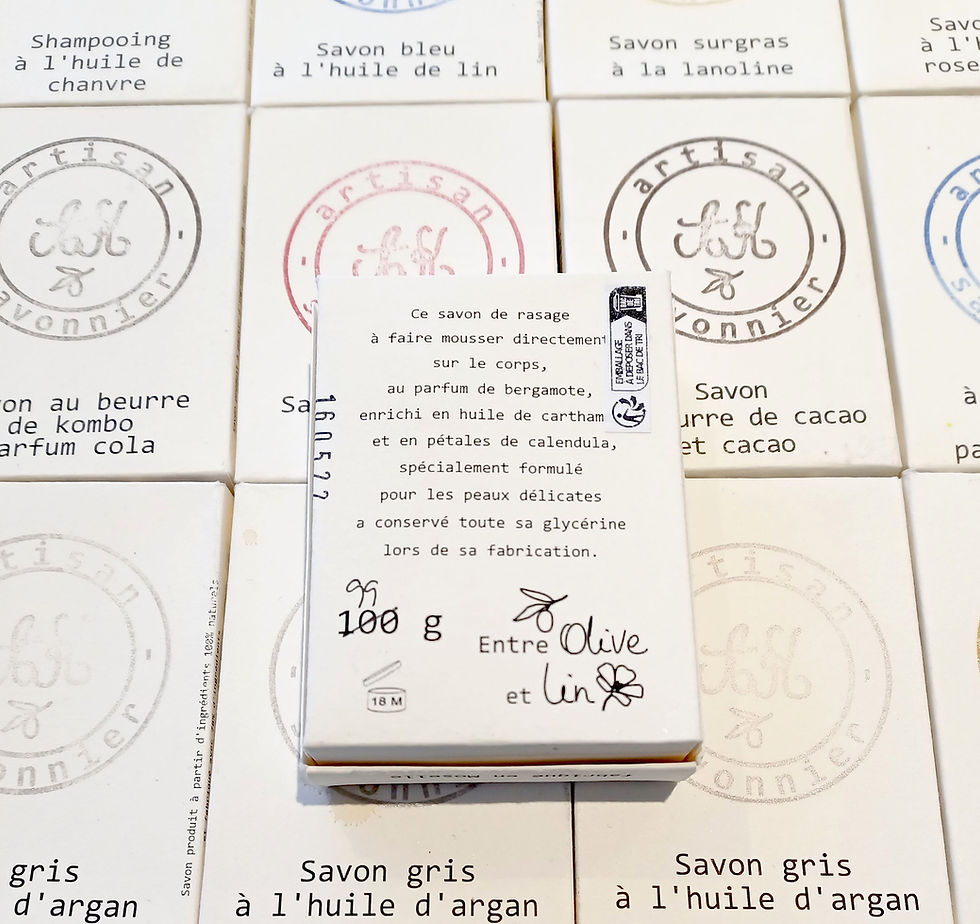 Shampooing
à l'huile de
chanvre
Savon bleu
à l'huile de lin
Savon surgras
à la lanoline
artisan
artisan
artisan
de kombo
cola
Savon
de cacao
et cacao
Ce savon de rasage
à faire mousser directement
sur le corps,
au parfum de bergamote,
enrichi en huile de cartham
et en pétales de calendula,
spécialement formulé
pour les peaux délicates
a conservé toute sa glycérine
lors de sa fabrication.
EMBALLAGE
À DÉPOSER DANS
LE BAC DE TRI
160522
99
100 g
18 M
Entre Olive
et lin
Fabriqué en Moselle
Savon produit à partir d'ingrédients 100% naturels
artisan
gris
d'argan
Savon gris
à l'huile d'argan
Savon gris
à l'huile d'argan